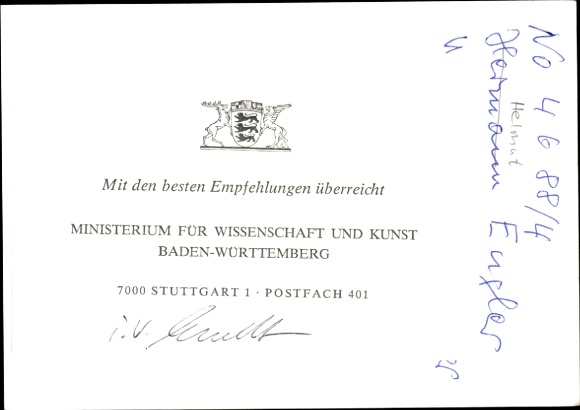 Mit den besten Empfehlungen überreicht
MINISTERIUM FÜR WISSENSCHAFT UND KUNST
BADEN-WÜRTTEMBERG
7000 STUTTGART 1 · POSTFACH 401
i.V.
No 4688/4
Hermann Engler
Helmut